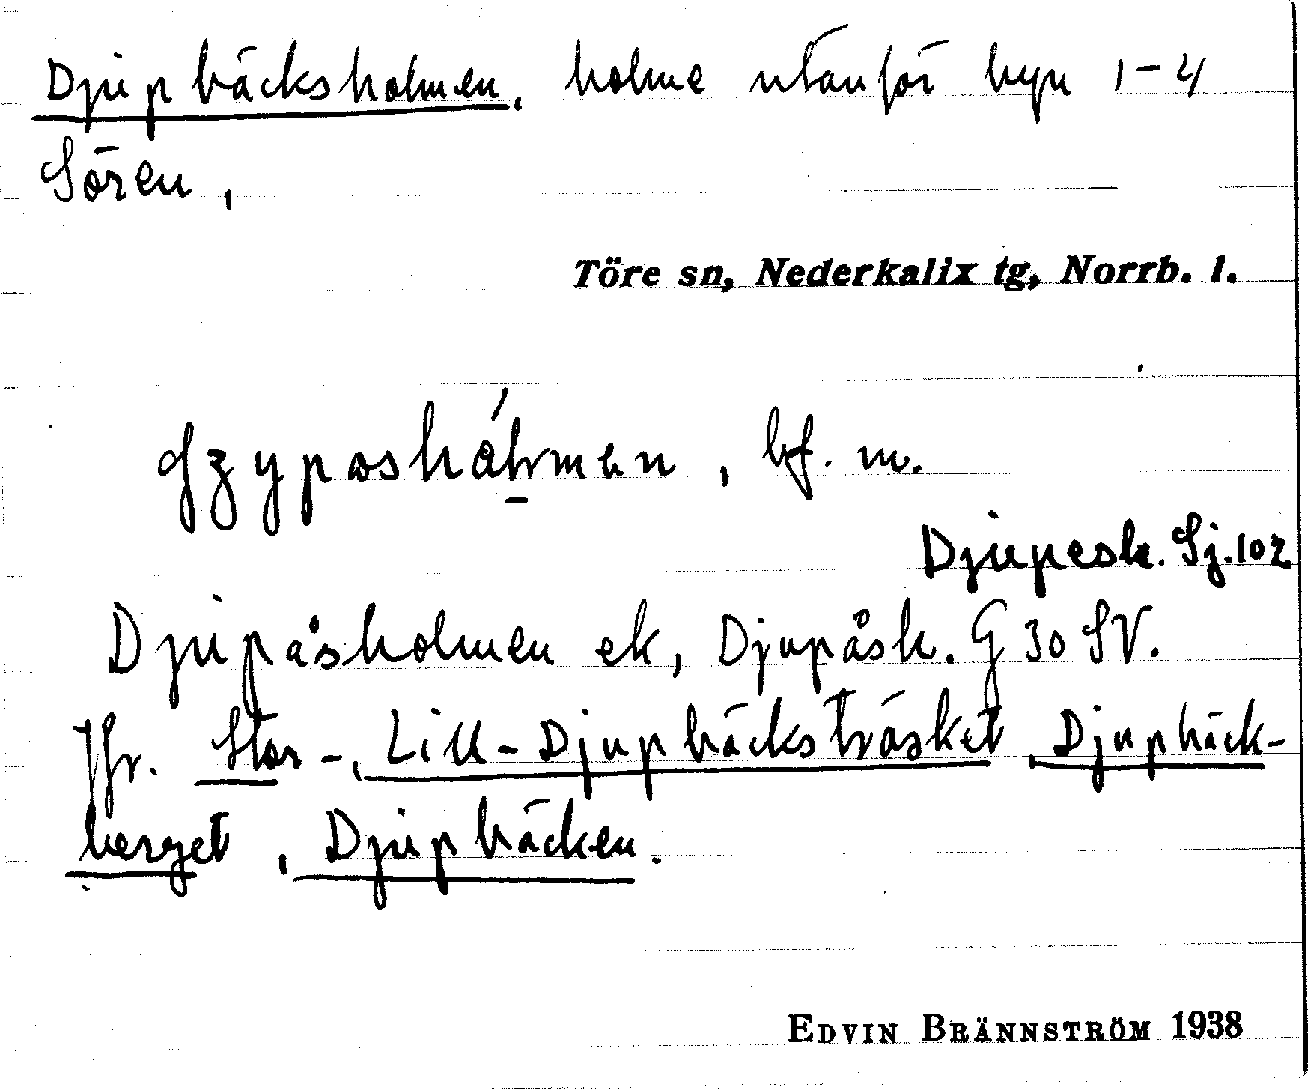 Djupbäcksholmen, holme utanför byn 1-4
Sören,
Töre sn, Nederkalix tg, Norrb. l.
bf. m.
Djupesh. Sj. 102
Djupåsholmen ek, Djupåsh. G 30 SV.
Jfr. Stor-, Lill-Djupbäcksträsket, Djupbäck-
berget, Djupbäcken.
EDVIN BRÄNNSTRÖM 1938